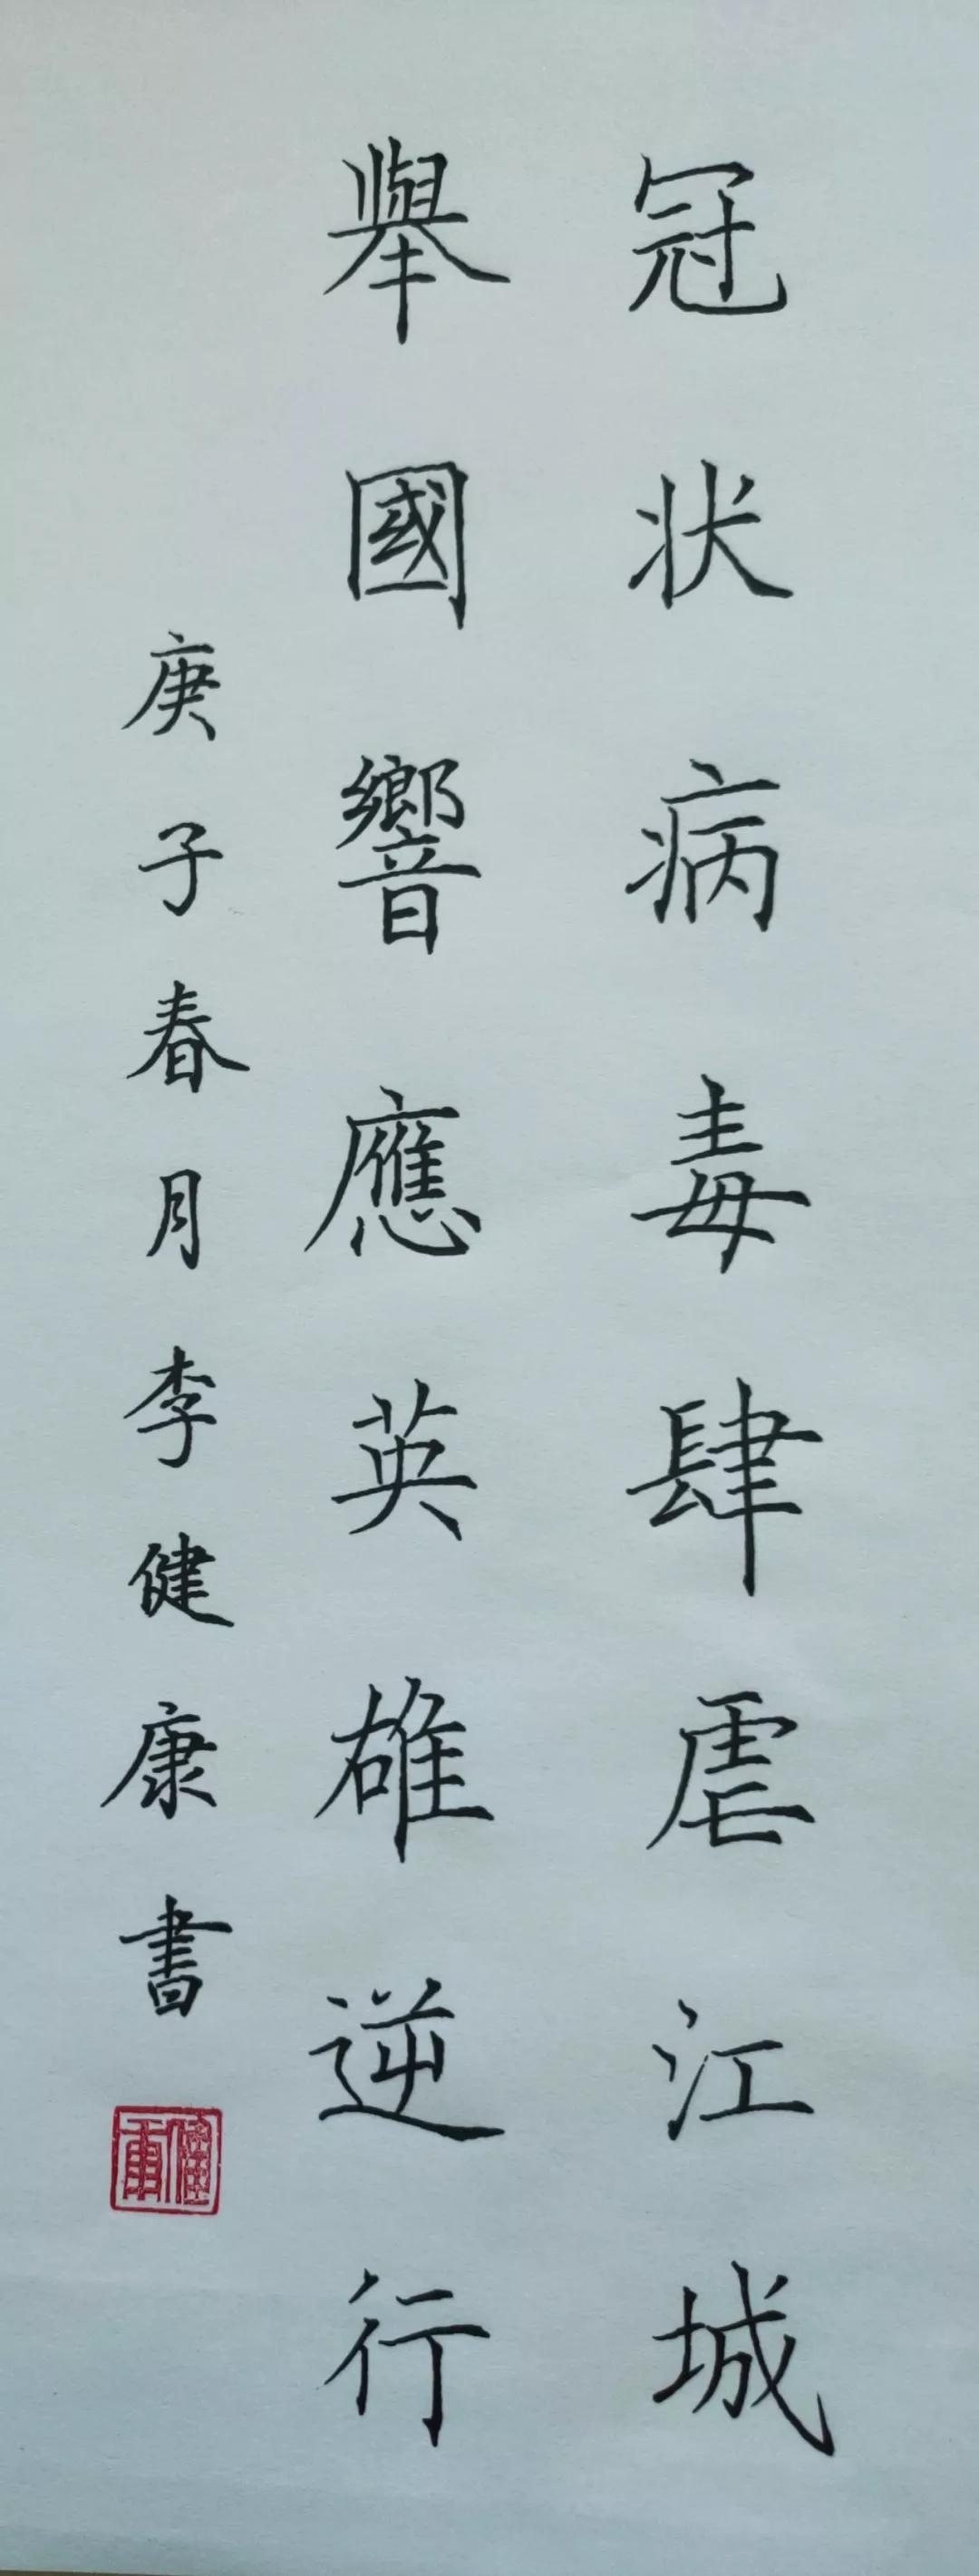 冠状病毒肆虐江城
舉國響應英雄逆行
庚子春月李健康書